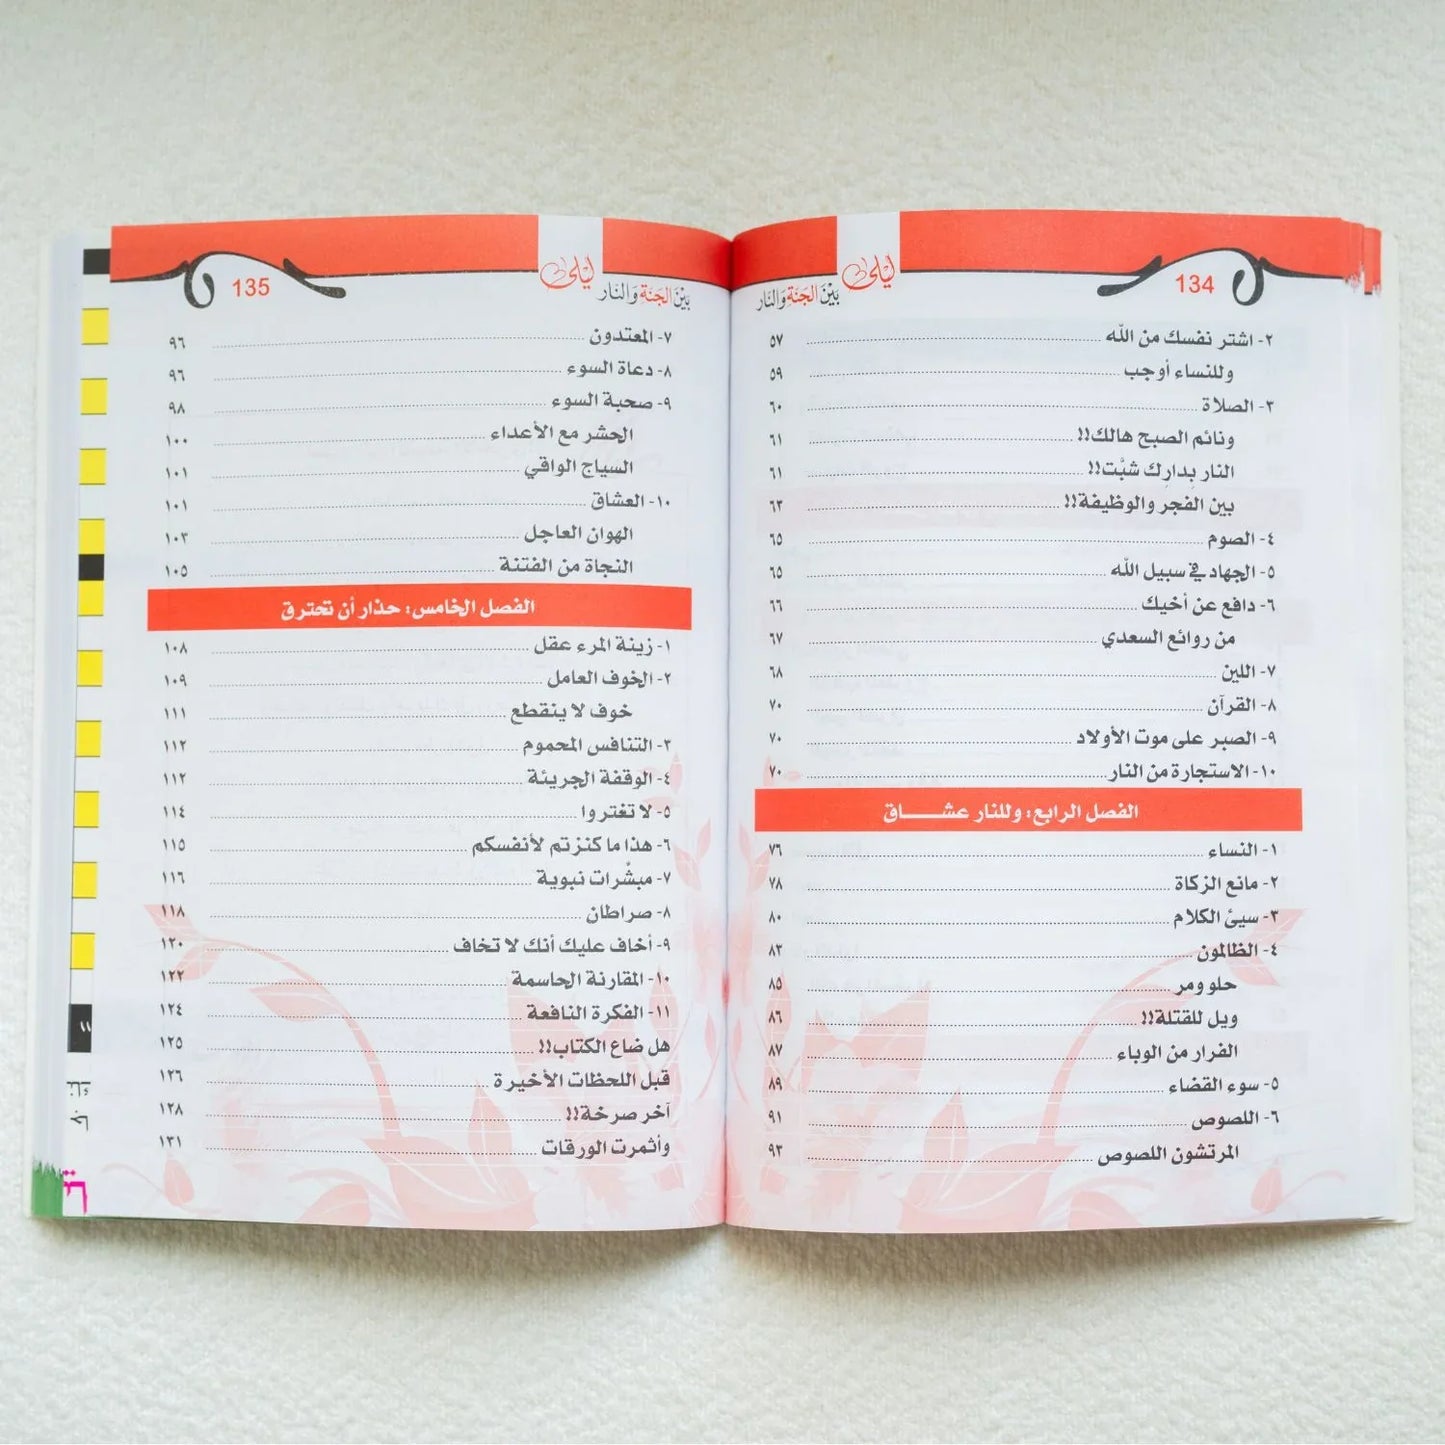 134
ليلى بَيْنَ الجَنَّةِ وَالنَار
٢- اشتر نفسك من الله ٥٧
وللنساء أوجب ٥٩
٣- الصلاة ٦٠
ونائم الصبح هالك!! ٦١
النار بِدارِك شبَّت!! ٦١
بين الفجر والوظيفة!! ٦٣
٤- الصوم ٦٥
٥- الجهاد في سبيل الله ٦٥
٦- دافع عن أخيك ٦٦
من روائع السعدي ٦٧
٧- اللين ٦٨
٨- القرآن ٧٠
٩- الصبر على موت الأولاد ٧٠
١٠- الاستجارة من النار ٧٠
الفصل الرابع: وللنار عشـــــاق
١- النساء ٧٦
٢- مانع الزكاة ٧٨
٣- سيئ الكلام ٨٠
٤- الظالمون ٨٣
حلو ومر ٨٥
ويل للقتلة!! ٨٦
الفرار من الوباء ٨٧
٥- سوء القضاء ٨٩
٦- اللصوص ٩١
المرتشون اللصوص ٩٣
135
ليلى بَيْنَ الجَنَّةِ وَالنَار
٧- المعتدون ٩٦
٨- دعاة السوء ٩٦
٩- صحبة السوء ٩٨
الحشر مع الأعداء ١٠٠
السياج الواقي ١٠١
١٠- العشاق ١٠١
الهوان العاجل ١٠٣
النجاة من الفتنة ١٠٥
الفصل الخامس: حذار أن تحترق
١- زينة المرء عقل ١٠٨
٢- الخوف العامل ١٠٩
خوف لا ينقطع ١١١
٣- التنافس المحموم ١١٢
٤- الوقفة الجريئة ١١٢
٥- لا تغتروا ١١٤
٦- هذا ما كنزتم لأنفسكم ١١٥
٧- مبشِّرات نبوية ١١٦
٨- صراطان ١١٨
٩- أخاف عليك أنك لا تخاف ١٢٠
١٠- المقارنة الحاسمة ١٢٢
١١- الفكرة النافعة ١٢٤
هل ضاع الكتاب!! ١٢٥
قبل اللحظات الأخيرة ١٢٦
آخر صرخة!! ١٢٨
وأثمرت الورقات ١٣١
١١